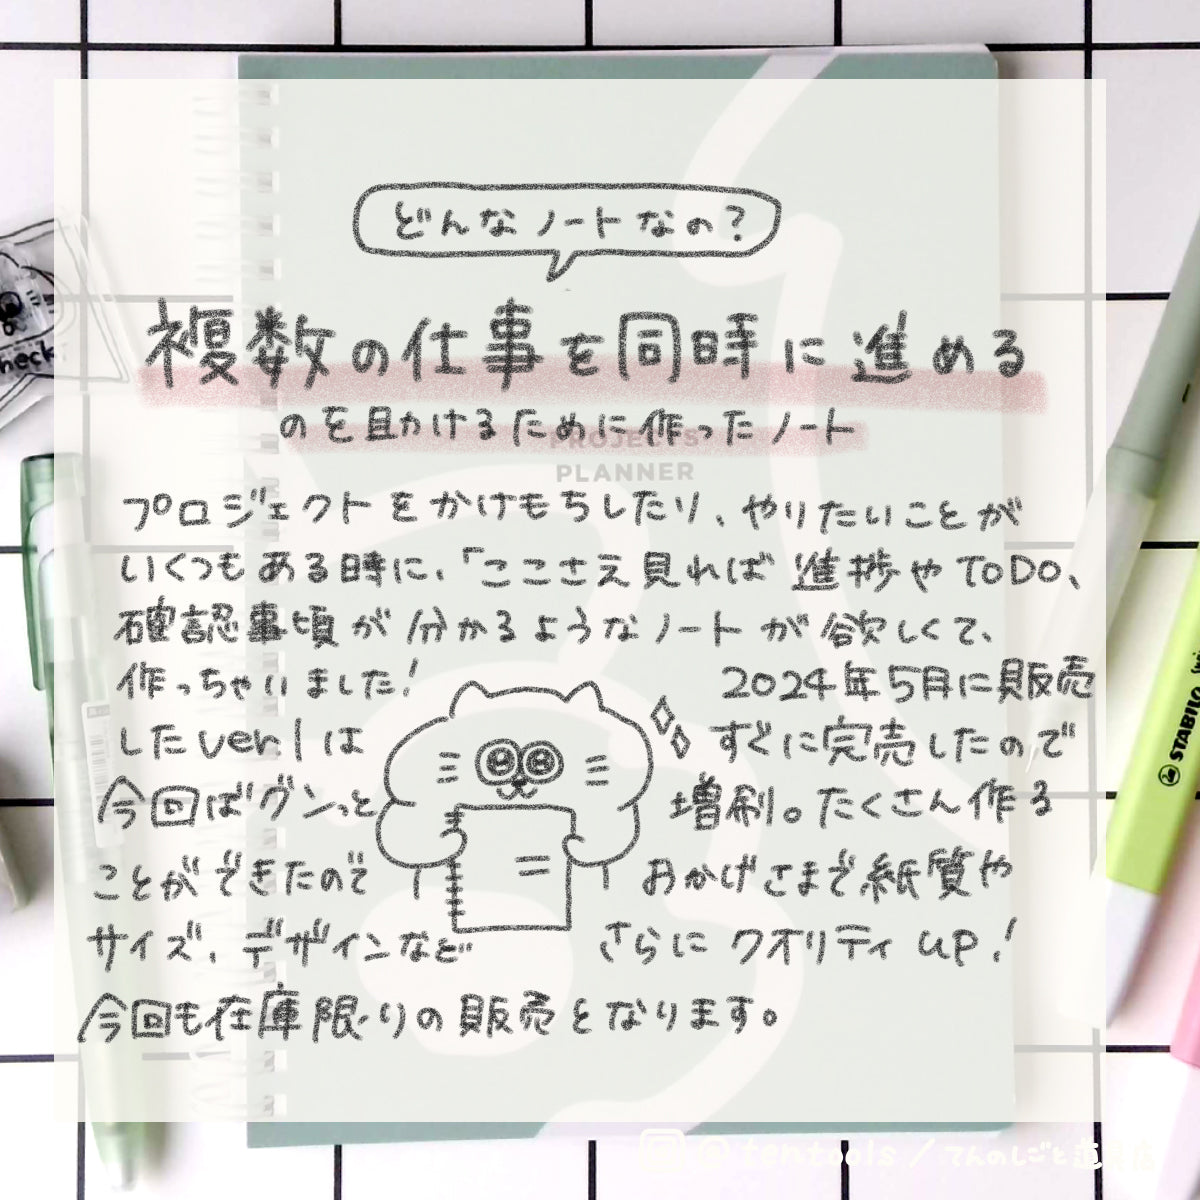 どんなノートなの?
複数の仕事を同時に進める
のを助けるために作ったノート
PROJECTS
PLANNER
プロジェクトをかけもちしたり、やりたいことが
いくつもある時に、「ここさえ見れば進捗やToDo、
確認事項が分かるようなノートが欲しくて、
作っちゃいました! 2024年5月に販売
したver.1は すぐに完売したので
今回はグンっと 増刷。たくさん作る
ことができたので おかげさまで紙質や
サイズ、デザインなど さらにクオリティup!
今回も在庫限りの販売となります。
check
STABILO
@tentools/てんのしごと道具店